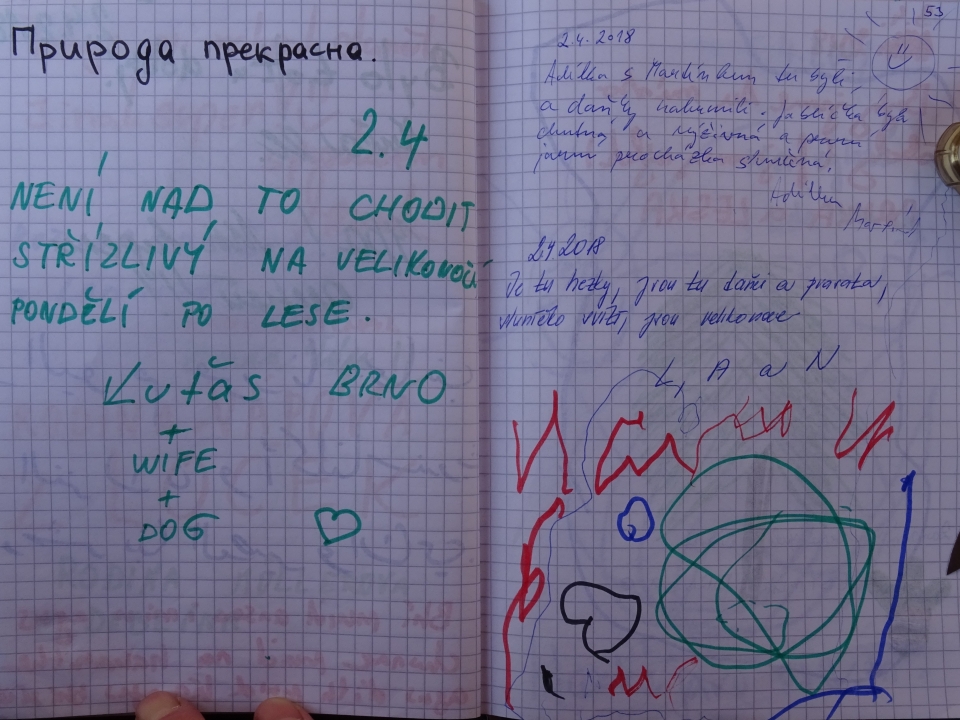 Природа прекрасна.
2.4
NENÍ NAD TO CHODIT
STŘÍZLIVÝ NA VELIKONOČÍ
PONDĚLÍ PO LESE.
Kutäs BRNO
+
WIFE
+
DOG
53
2.4.2018
Adélka s Martínkem tu byli,
a daňky nakrmili. Jablíčka byla
chutná a výživná a první
jarní procházka slunečná.
Adélka
Martínek
2.4.2018
Je tu hezky, jsou tu daňci a prasata,
sluníčko svítí, jsou velikonoce
L, A a N